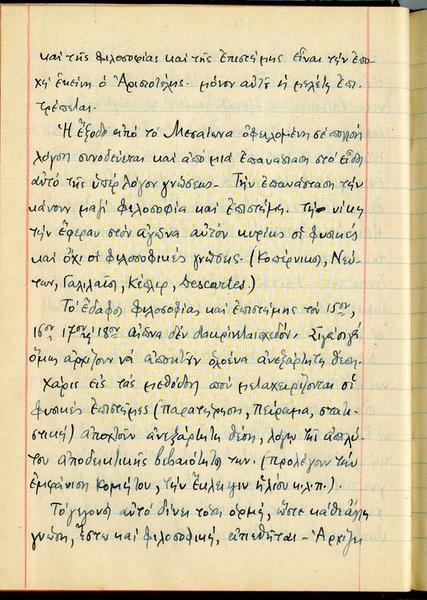 καὶ τῆς φιλοσοφίας καὶ τῆς ἐπιστήμης εἶναι τὴν ἐπο-
χὴ ἐκείνη ὁ Ἀριστοτέλης. μόνον αὐτὴ ἡ μελέτη ἐπι-
τρέπεται.
Ἡ ἔξοδος ἀπὸ τὸ Μεσαίωνα ὀφειλομένη σὲ πολλοὺς
λόγους συνοδεύεται καὶ ἀπὸ μιὰ ἐπανάσταση στὸ εἶδος
αὐτὸ τῆς ὑπὲρ λόγον γνώσεως. Τὴν ἐπανάσταση τὴν
κάνουν μαζὶ φιλοσοφία καὶ ἐπιστήμη. Τὴ νίκη
τὴν ἔφεραν στὸν ἀγῶνα αὐτὸν κυρίως οἱ φυσικὲς
καὶ ὄχι οἱ φιλοσοφικὲς γνώσεις. (Κοπέρνικος, Νεύ-
των, Γαλιλαῖος, Κέπλερ, Descartes.)
Τὸ ἔδαφος φιλοσοφίας καὶ ἐπιστήμης τὸν 15ον,
16ον, 17ον, 18ον αἰῶνα δὲν διακρίνεται σχεδόν. Σιγὰ σιγὰ
ὅμως ἀρχίζουν νὰ ἀποκτοῦν ὁλοένα ἀνεξάρτητη θέση.
Χάρις εἰς τὰς μεθόδους ποὺ μεταχειρίζονται οἱ
φυσικὲς ἐπιστῆμες (παρατήρηση, πείραμα, στατι-
στικὴ) ἀποκτοῦν ἀνεξάρτητη θέση, λόγῳ τῆς ἀπολύ-
του ἀποδεικτικῆς βεβαιότητός των. (προλέγουν τὴν
ἐμφάνιση κομήτου, τὴν ἔκλειψιν ἡλίου κ.λ.π.).
Τὸ γεγονὸς αὐτὸ δίνει τόση ὁρμή, ὥστε κάθε ἄλλη
γνώση, ἔστω καὶ φιλοσοφική, – Ἀρχίζει